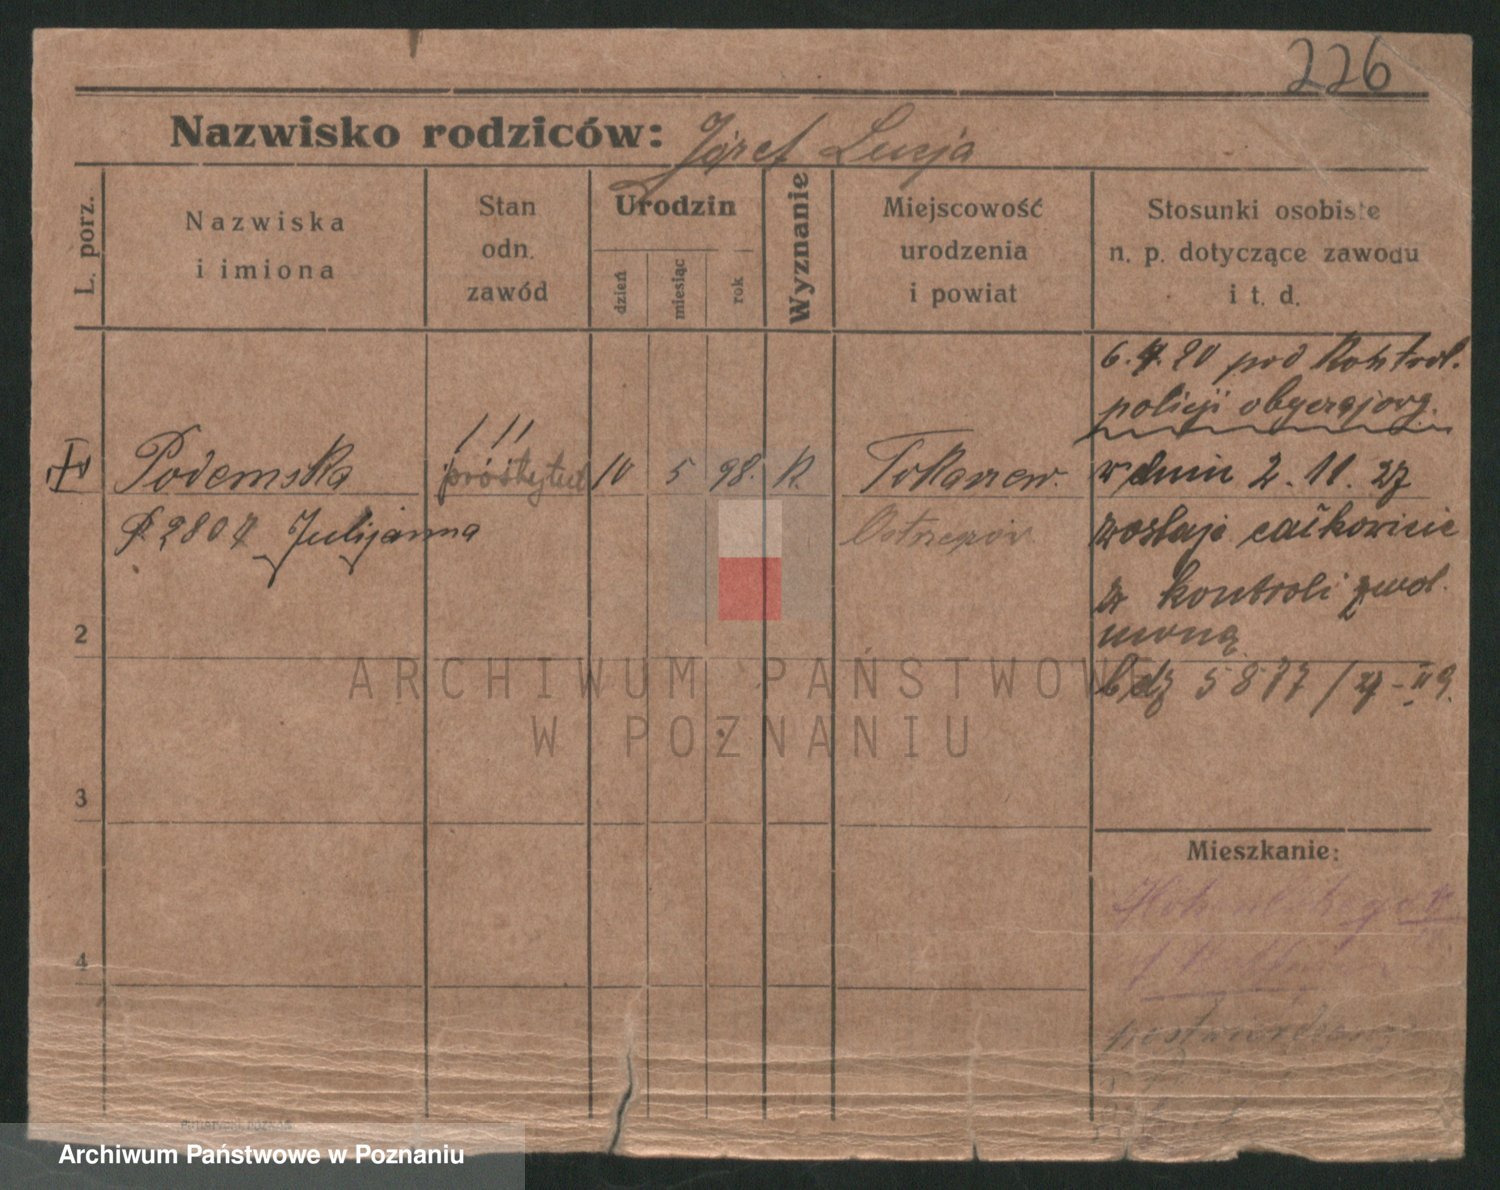 226
Nazwisko rodziców: Józef Lucja
L. porz.
Nazwiska
i imiona
Stan
odn.
zawód
Urodzin
dzień
miesiąc
rok
Wyznanie
Miejscowość
urodzenia
i powiat
Stosunki osobiste
n. p. dotyczące zawodu
i t. d.
6.4.20 pod Kontrol.
policji obyczajową.
Podemska
! ! !
prostytut
10
5
98.
K.
Tokarzew.
w dniu 2. 11. 27
2804 Julijanna
Ostrzeszów
zostaje całkowicie
z kontroli zwol.
nioną
2
5877/27
3
Mieszkanie:
4
ARCHIWUM PAŃSTWOWE
W POZNANIU
Archiwum Państwowe w Poznaniu